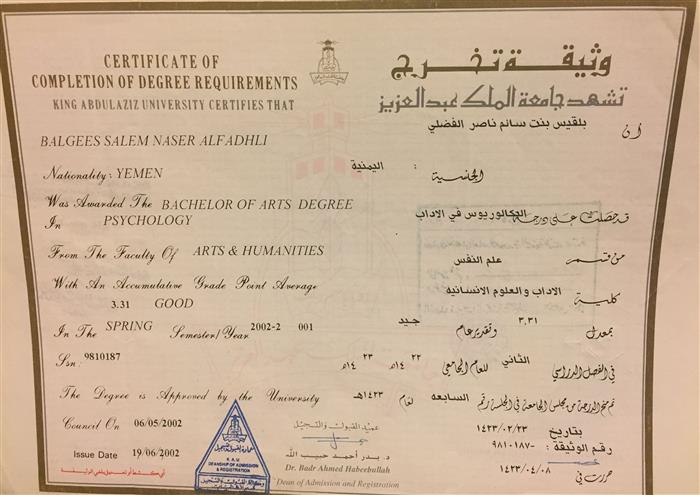 CERTIFICATE OF
COMPLETION OF DEGREE REQUIREMENTS
KING ABDULAZIZ UNIVERSITY CERTIFIES THAT
BALGEES SALEM NASER ALFADHLI
Nationality: YEMEN
Was Awarded The BACHELOR OF ARTS DEGREE
In PSYCHOLOGY
From The Faculty Of ARTS & HUMANITIES
With An Accumulative Grade Point Average
3.31 GOOD
In The SPRING Semester/Year 2002-2 001
Ssn: 9810187
The Degree is Approved by the University
Council On 06/05/2002
Issue Date 19/06/2002
وثيقة تخرج
تشهد جامعة الملك عبدالعزيز
أن بلقيس بنت سالم ناصر الفضلي
الجنسية : اليمنية
قد حصلت على درجة البكالوريوس في الاداب
من قسم علم النفس
كلية الاداب والعلوم الانسانيه
بمعدل ٣,٣١ وتقدير عام جيد
في الفصل الدراسي الثاني للعام الجامعي ٢٢ ١٤هـ ٢٣ ١٤هـ
تم منح الدرجة من مجلس الجامعة في الجلسة رقم السابعه لعام ١٤٢٣هـ
بتاريخ ١٤٢٣/٠٢/٢٣
رقم الوثيقة : ٩٨١٠١٨٧-
حررت في ١٤٢٣/٠٤/٠٨
عميد القبول والتسجيل
د. بدر أحمد حبيب الله
Dr. Badr Ahmed Habeebullah
Dean of Admission and Registration
K.A.U
DEANSHIP OF ADMISSION
& REGISTRATION
أي كشط أو تعديل يلغي الوثيقة